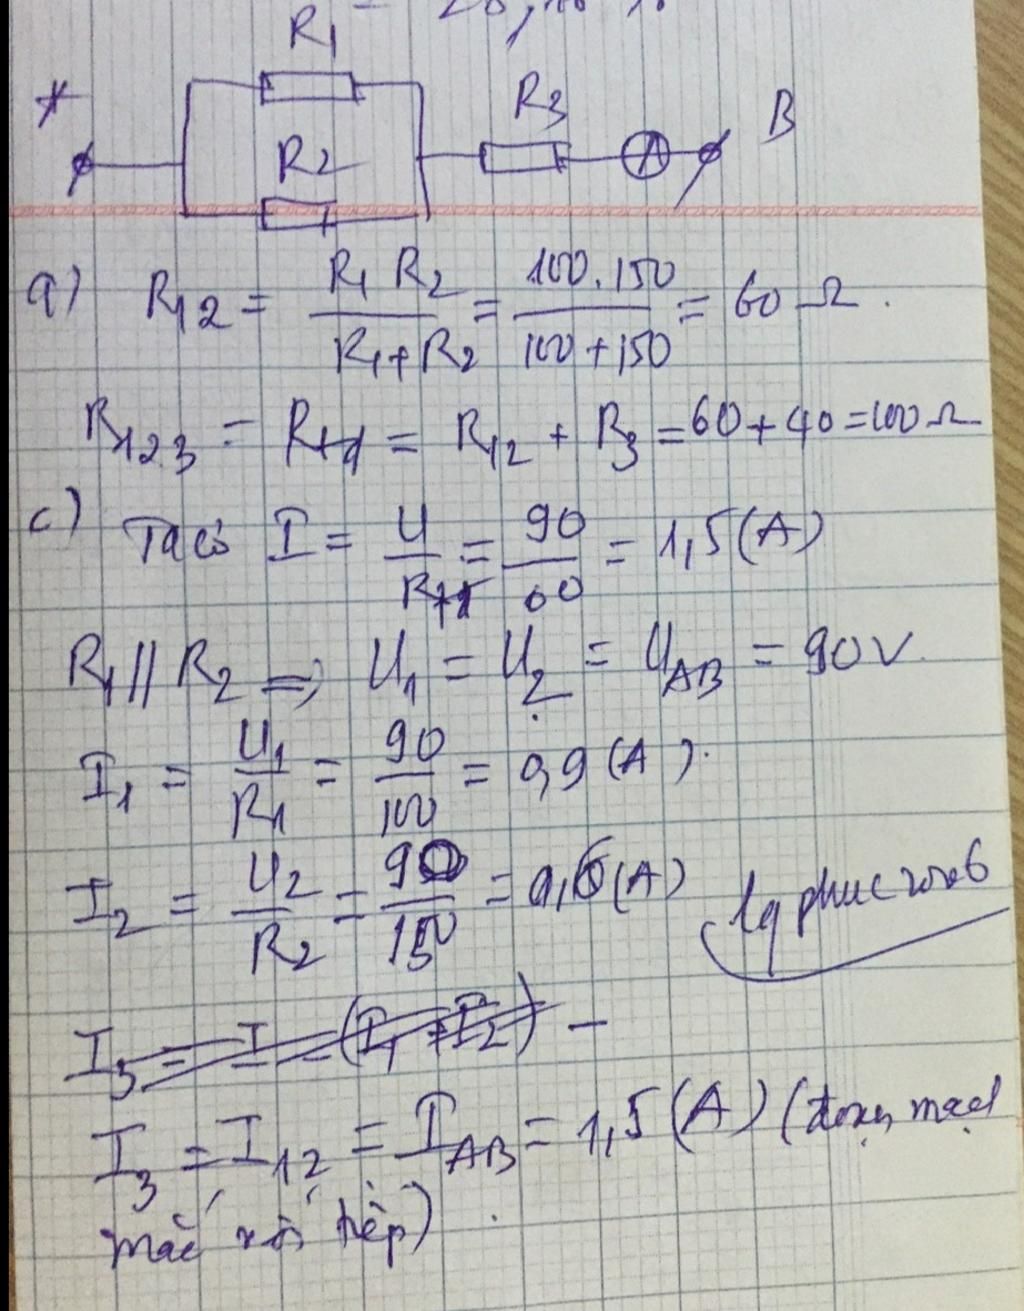 R1
R3
B
R2
a) R12 = R1 R2 / R1+R2 = 100.150 / 100+150 = 60 Ω.
R123 = Rtđ = R12 + R3 = 60 + 40 = 100 Ω
c) Ta có I = U / Rtđ = 90 / 60 = 1,5 (A)
R1 // R2 => U1 = U2 = UAB = 90 V.
I1 = U1 / R1 = 90 / 100 = 0,9 (A).
I2 = U2 / R2 = 90 / 150 = 0,6 (A)
lq phuc
I3 = I - (I1 + I2) -
I3 = I12 = IAB = 1,5 (A) (đoạn mạch
mắc nối tiếp).